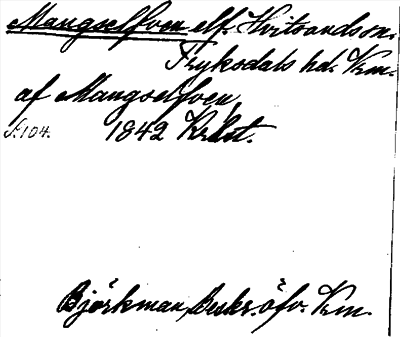 Mangselfven elf. Hvitsands sn.
Fryksdals hd. Vrm.
af Mangselfven,
S. 104. 1842 Krbst.
Björkman, Beskr. öfv. Vrm.